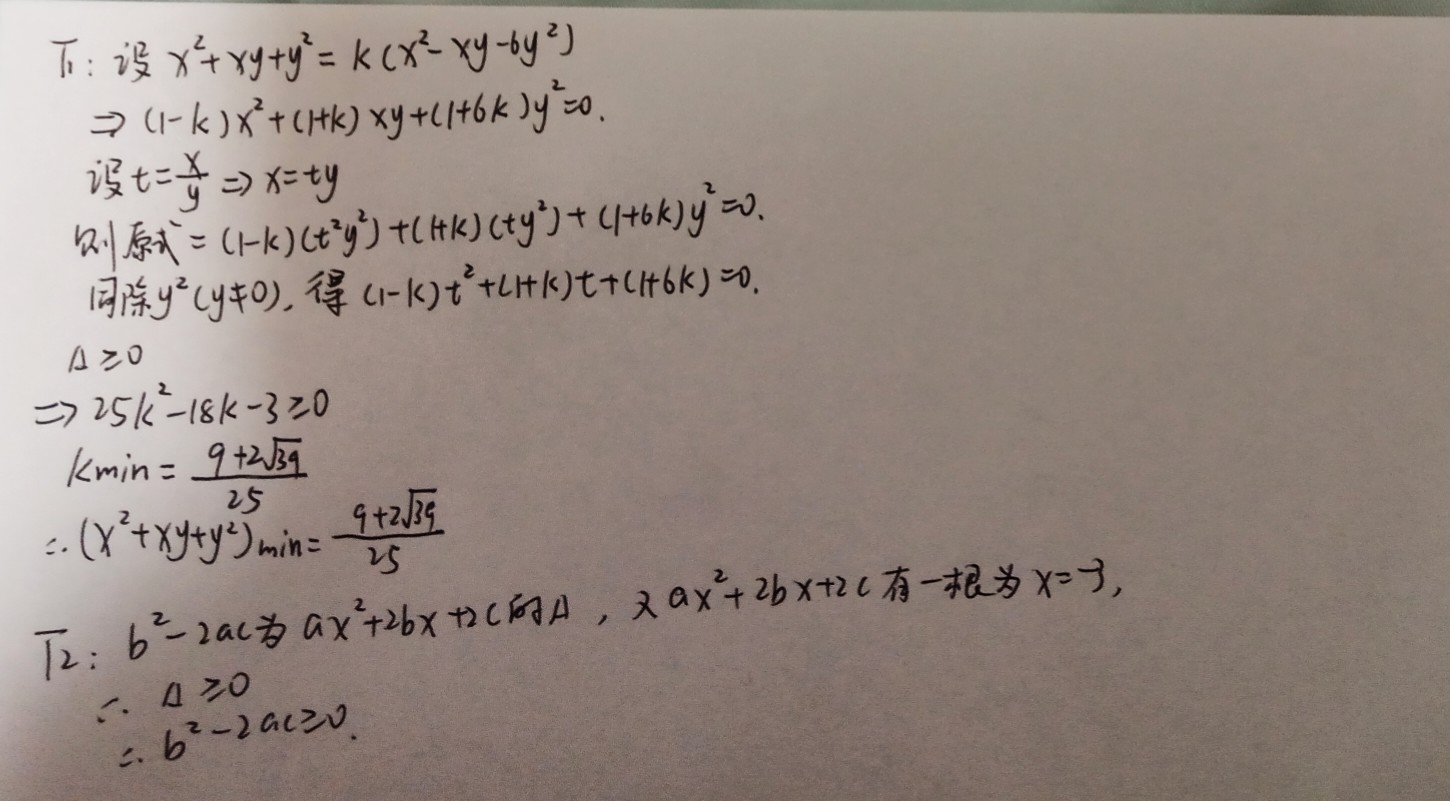 T1: 设 x²+xy+y²=k(x²-xy-6y²)
⇒(1-k)x²+(1+k)xy+(1+6k)y²=0.
设t=x/y⇒x=ty
则原式=(1-k)(t²y²)+(1+k)(ty²)+(1+6k)y²=0.
同除y²(y≠0),得(1-k)t²+(1+k)t+(1+6k)=0.
Δ≥0
⇒25k²-18k-3≥0
kmin=(9+2√39)/25
∴(x²+xy+y²)min=(9+2√39)/25
T2: b²-2ac为ax²+2bx+2c的Δ,又ax²+2bx+2c有一根为x=-3,
∴Δ≥0
∴b²-2ac≥0.